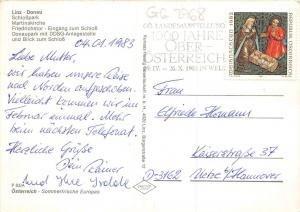 Linz - Donau
Schloßpark
Martinskirche
Friedhofstor - Eingang zum Schloß
Donaupark mit DDSG-Anlegestelle
und Blick zum Schloß
04.01.1983
Liebe Mutter,
wir haben unsere Reise
nach Norden aufgeschoben.
Vielleicht kommen wir im
Februar einmal. Mehr
beim nächsten Telefonat.
Herzliche Grüße
Dein Rainer
und Ihre Isolde
Österreich - Sommerfrische Europas
OÖ. LANDESAUSSTELLUNG
1000 JAHRE
OBER-
ÖSTERREICH
1983 IN WELS
REPUBLIK ÖSTERREICH
Frau
Elfriede Homann
Kaiserstraße 37
D-3162 Uetze b/Hannover